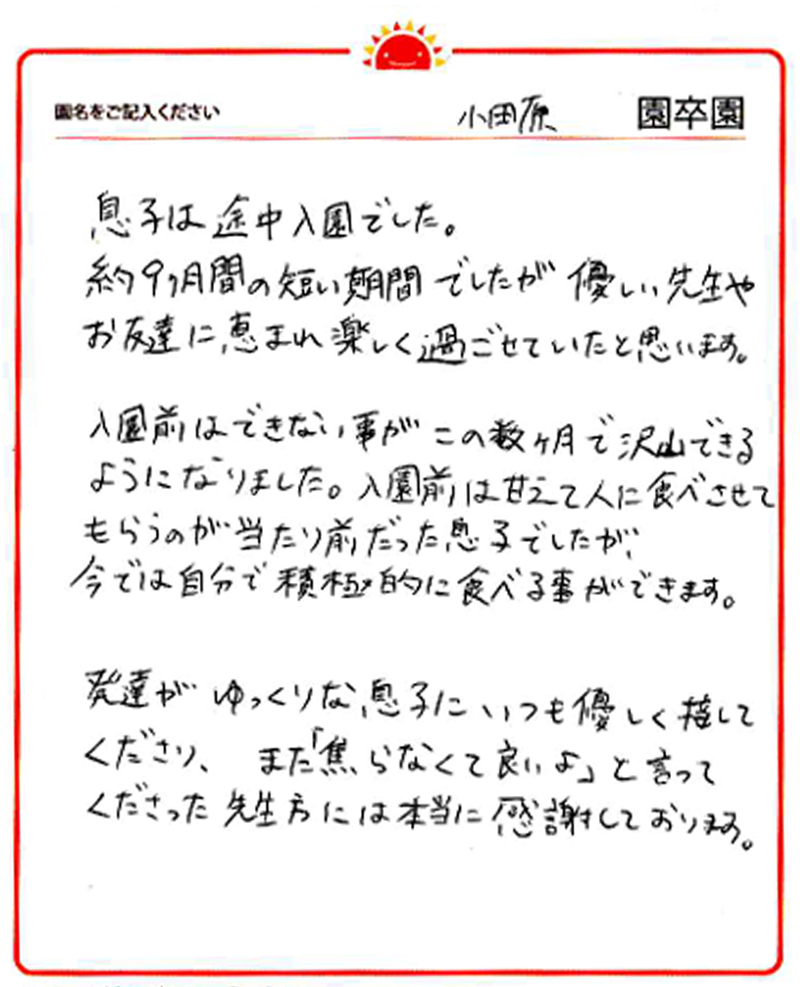 園名をご記入ください 小田原 園卒園
息子は途中入園でした。
約9ヶ月間の短い期間でしたが優しい先生や
お友達に恵まれ楽しく過ごせていたと思います。
入園前はできない事がこの数ヶ月で沢山できる
ようになりました。入園前は甘えて人に食べさせて
もらうのが当たり前だった息子でしたが、
今では自分で積極的に食べる事ができます。
発達がゆっくりな息子にいつも優しく接して
くださり、また「焦らなくて良いよ」と言って
くださった先生方には本当に感謝しております。